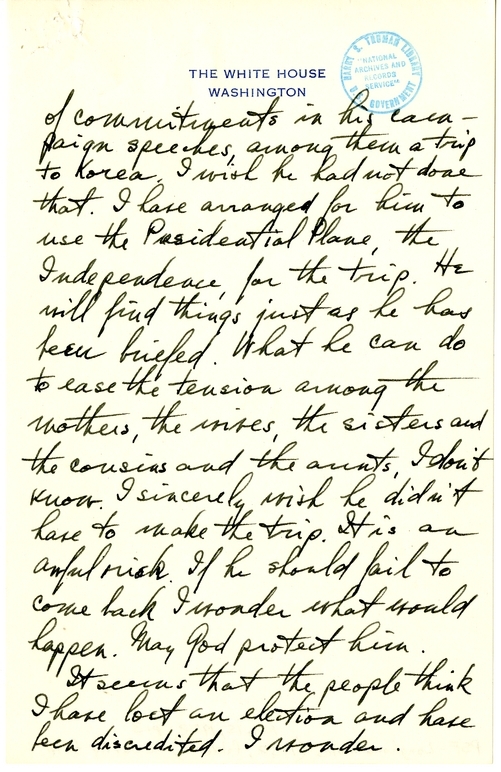 THE WHITE HOUSE
WASHINGTON
HARRY S. TRUMAN LIBRARY
"NATIONAL
ARCHIVES AND
RECORDS
SERVICE"
U.S. GOVERNMENT
of commitments in his cam-
paign speeches, among them a trip
to Korea. I wish he had not done
that. I have arranged for him to
use the Presidential Plane, the
Independence, for the trip. He
will find things just as he has
been briefed. What he can do
to ease the tension among the
mothers, the wives, the sisters and
the cousins and the aunts, I don't
know. I sincerely wish he didn't
have to make the trip. It is an
awful risk. If he should fail to
come back I wonder what would
happen. May God protect him.
It seems that the people think
I have lost an election and have
been discredited. I wonder.